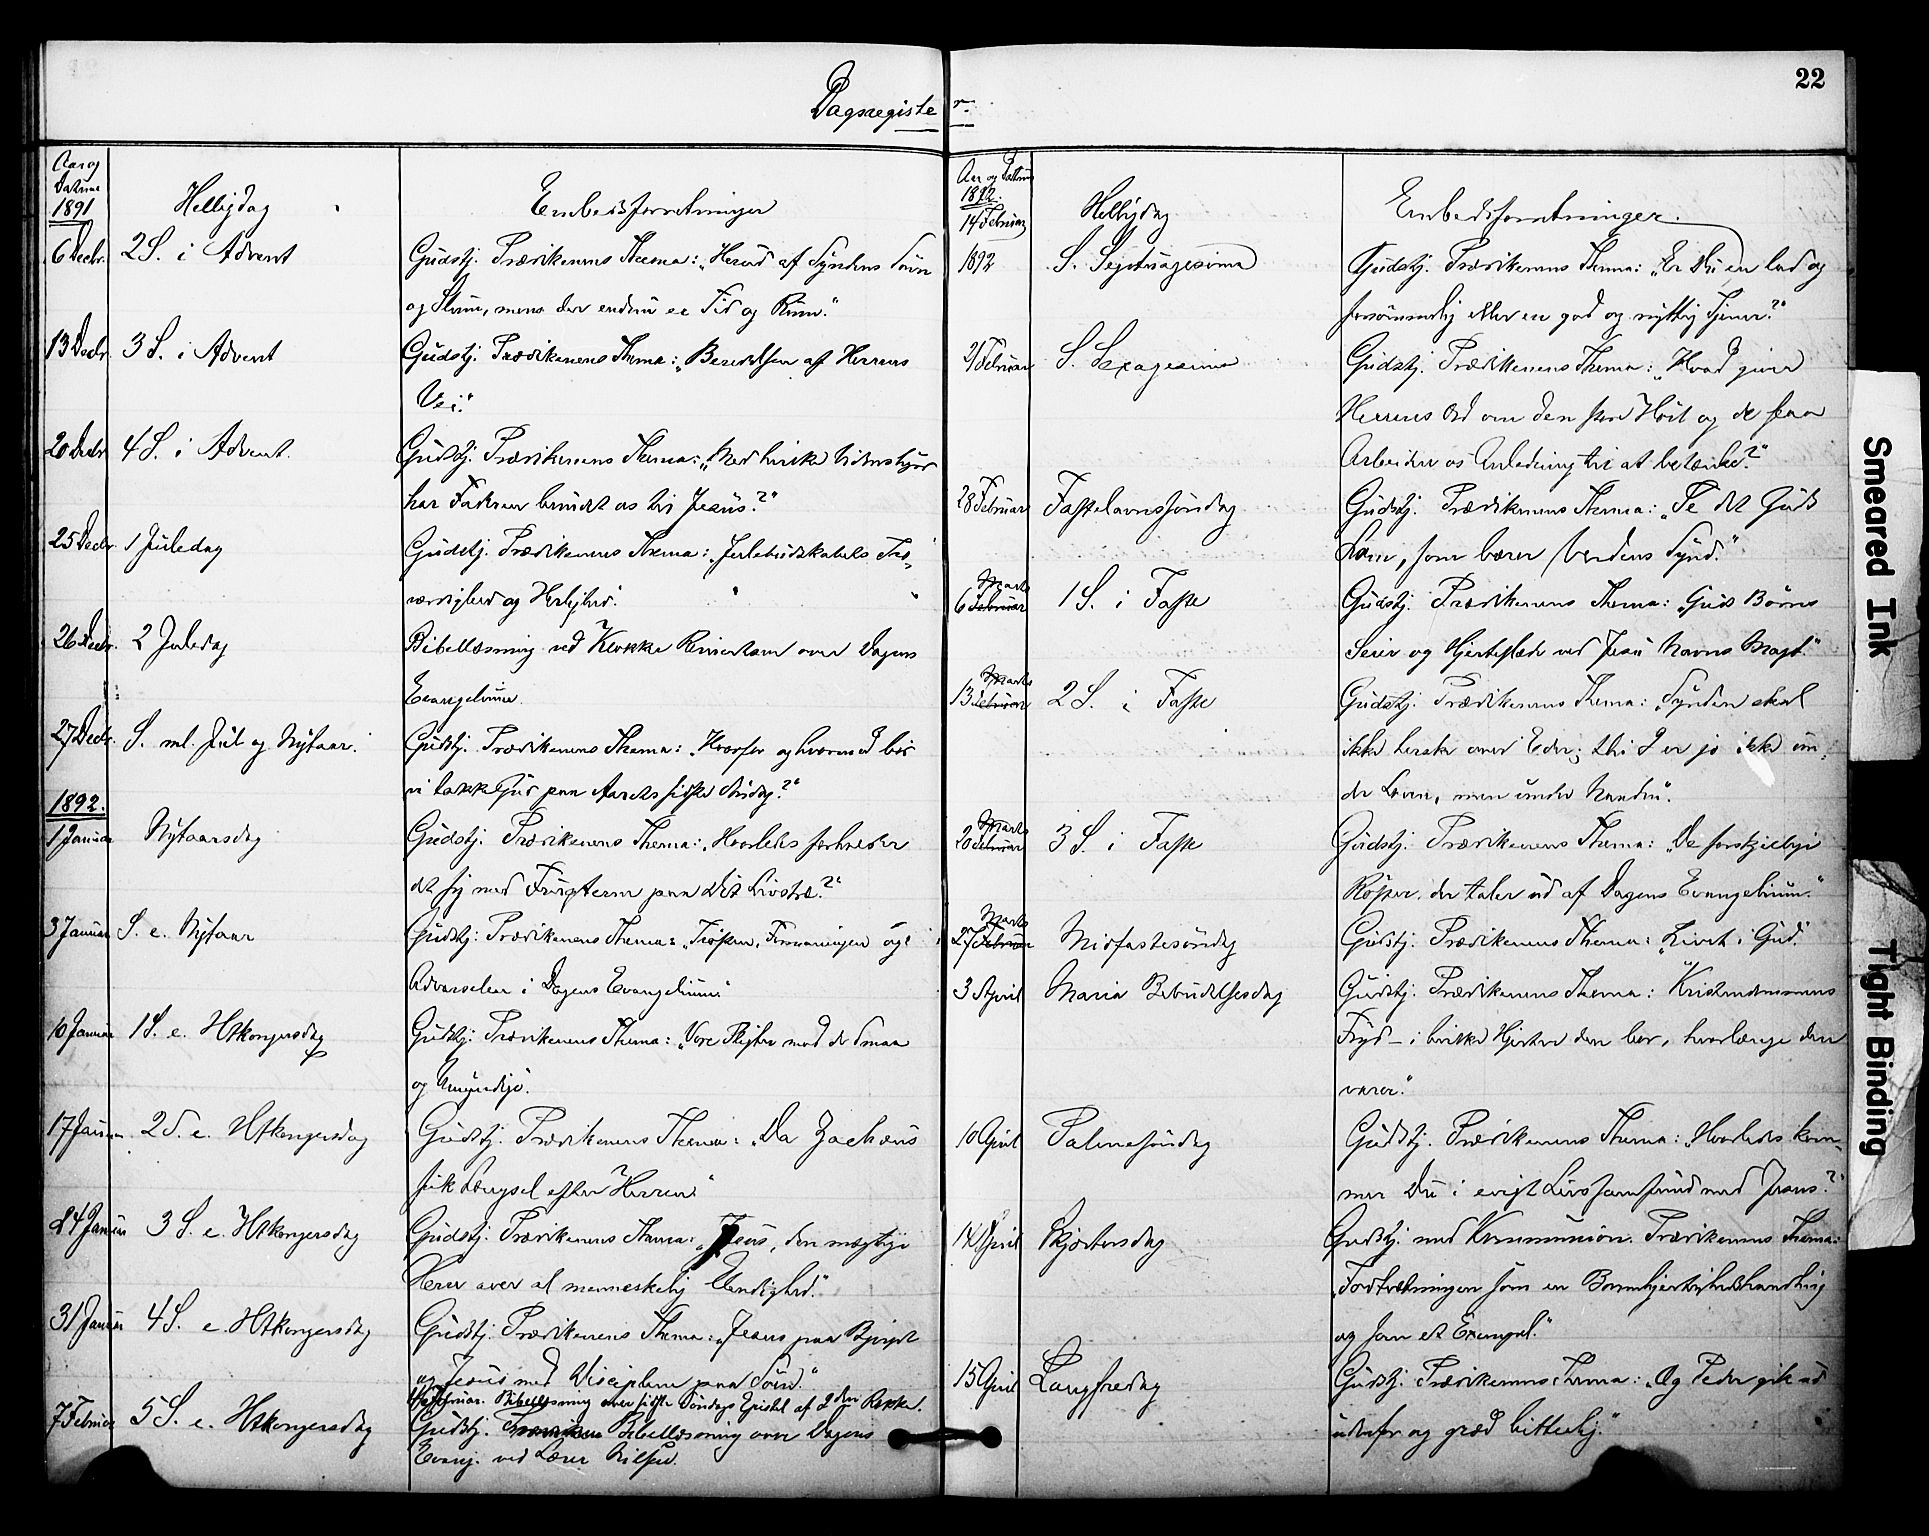 Dagsregister.
22
Aar og
Datum
1891
Helligdag
Embedsforretninger
6 Decbr. 2 S. i Advent Gudstj. Prædikenens Thema: "Herud af Syndens Søvn
og Slum, mens der endnu er Tid og Rum."
13 Decbr. 3 S. i Advent Gudstj. Prædikenens Thema: "Beredelsen af Herrens
Vei."
20 Decbr. 4 S. i Advent. Gudstj. Prædikenens Thema: "Med hvilke Vidnesbyrd
har Faderen bundet os til Jesus?"
25 Decbr. 1 Juledag Gudstj. Prædikenens Thema: "Julebudskabets Tro-
værdighed og Herlighed."
26 Decbr. 2 Juledag Bibellæsning ved Klokker over Dagens
Evangelium.
27 Decbr. S. ml. Jul og Nytaar. Gudstj. Prædikenens Thema: "Hvorfor og hvormed bør
vi takke Gud paa Aarets sidste Søndag?"
1892.
1 Januar Nytaarsdag Gudstj. Prædikenens Thema: "Hvorledes forholder
det sig med Frugterne paa dit Livstræ?"
3 Januar S. e. Nytaar Gudstj. Prædikenens Thema: "Trøsten, Formaningen og
Advarselen i Dagens Evangelium."
10 Januar 1 S. e. Htkongersdag Gudstj. Prædikenens Thema: "Vore Pligter mod de Smaa
og Umyndige."
17 Januar 2 S. e. Htkongersdag Gudstj. Prædikenens Thema: "Da Zachæus
fik Længsel efter Herren."
24 Januar 3 S. e. Htkongersdag Gudstj. Prædikenens Thema: "Jesus, den mægtige
Herre over al menneskelig Elendighed."
31 Januar 4 S. e. Htkongersdag Gudstj. Prædikenens Thema: "Jesus paa Bjerget
og Jesus med Disciplene paa Søen."
Februar. Bibellæsning over sidste Søndags Epistel af 2den Række.
7 Februar 5 S. e. Htkongersdag Gudstj. Bibellæsning over Dagens
Evang. ved Lærer Nilsen.
Aar og Datum
1892.
14 Februar
Helligdag
Embedsforretninger.
1892 S. Septuagesima Gudstj. Prædikenens Thema: "Er Du en lad og
forsømmelig eller en god og nyttig Tjener?"
21 Februar S. Sexagesima Gudstj. Prædikenens Thema: "Hvad giver
Herrens Ord om den store Høst og de faa
Arbeidere os Anledning til at betænke?"
28 Februar Fastelavnssøndag Gudstj. Prædikenens Thema: "Se det Guds
Lam, som bærer Verdens Synd."
Marts
6 Februar 1 S. i Faste Gudstj. Prædikenens Thema: "Guds Børns
Seier og Hjerteglæde ved Jesu Navns Magt."
Marts
13 Februar 2 S. i Faste Gudstj. Prædikenens Thema: "Synden skal
ikke herske over Eder; thi I er jo ikke un-
der Loven, men under Naaden."
Marts
20 Februar 3 S. i Faste Gudstj. Prædikenens Thema: "De forskjellige
Røster, der taler ud af Dagens Evangelium."
Marts
27 Februar Midfastesøndag Gudstj. Prædikenens Thema: "Livet i Gud."
3 April Maria Bebudelsesdag Gudstj. Prædikenens Thema: "Kristendommens
Fryd – i hvilke Hjerter den bor, hvorlænge den
varer."
10 April Palmesøndag Gudstj. Prædikenens Thema: "Hvorledes kom-
mer Du i evigt Livssamfund med Jesus?"
14 April Skjærtorsdag Gudstj. med Kommunion. Prædikenens Thema:
"Fodtvætningen som en Barmhjertighedshandling
og som et Exempel."
15 April Langfredag Gudstj. Prædikenens Thema: "Og Peder gik ud
udenfor og græd bitterlig."
Smeared Ink
Tight Binding